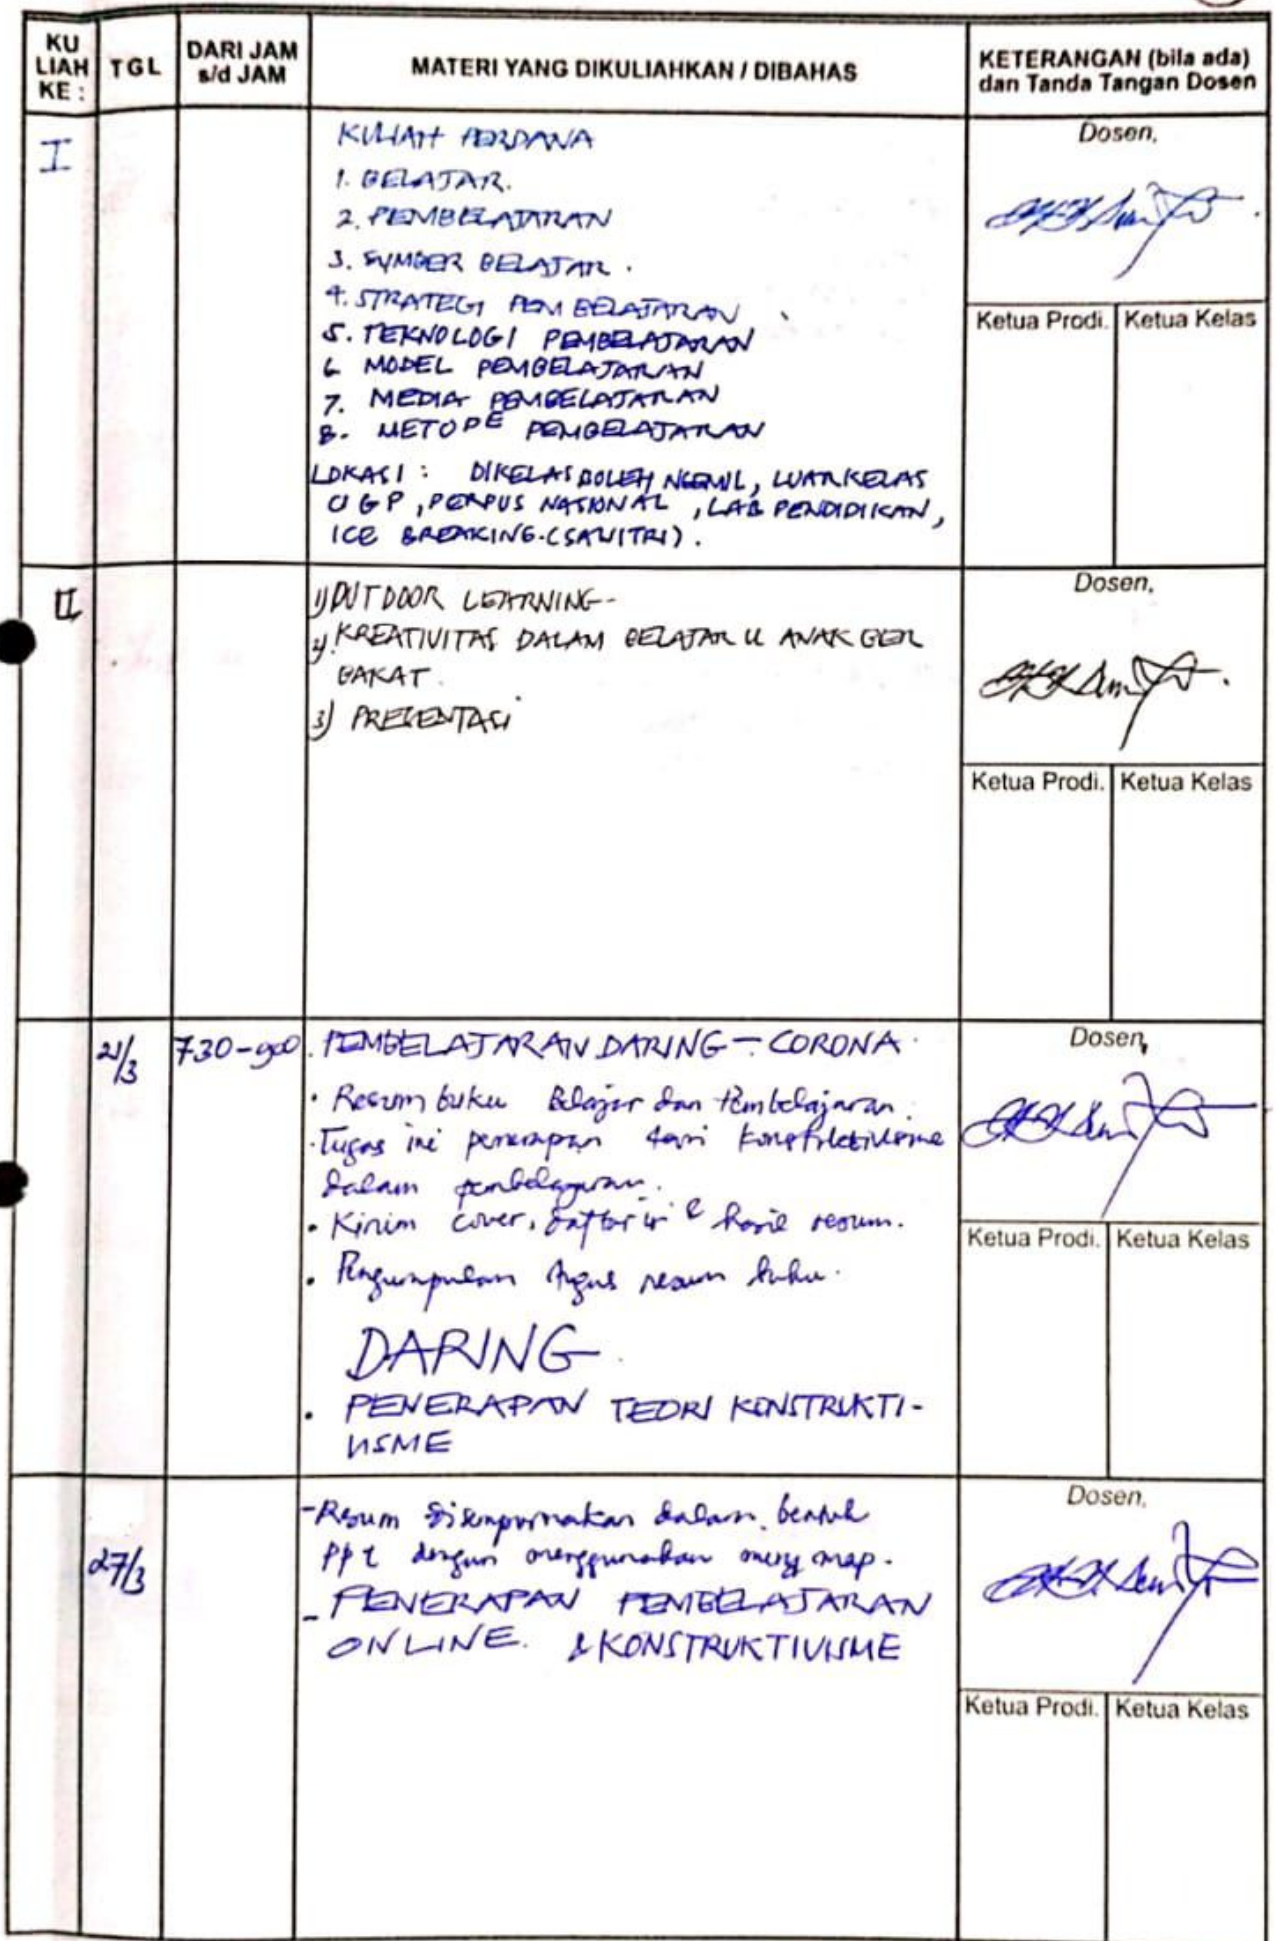 KU LIAH KE :
TGL
DARI JAM s/d JAM
MATERI YANG DIKULIAHKAN / DIBAHAS
KETERANGAN (bila ada) dan Tanda Tangan Dosen
I
KULIAH PERDANA
1. BELAJAR.
2. PEMBELAJARAN
3. SUMBER BELAJAR .
4. STRATEGI PEMBELAJARAN
5. TEKNOLOGI PEMBELAJARAN
6 MODEL PEMBELAJARAN
7. MEDIA PEMBELAJARAN
8. METODE PEMBELAJARAN
LOKASI : DIKELAS BOLEH NGEMIL, LUAR KELAS
UGP, PERPUS NASIONAL, LAB PENDIDIKAN,
ICE BREAKING. (SAWITRI).
Dosen,
Ketua Prodi. Ketua Kelas
II
1) OUTDOOR LEARNING-
2) KREATIVITAS DALAM BELAJAR U ANAK BER
BAKAT.
3) PRESENTASI
Dosen,
Ketua Prodi. Ketua Kelas
21/3
730-900
PEMBELAJARAN DARING - CORONA.
• Resum buku Belajar dan Pembelajaran.
• Tugas ini penerapan dari Konstruktivisme
dalam pembelajaran.
• Kirim cover, daftar isi & hasil resum.
• Pengumpulan tugas resum buku.
DARING
• PENERAPAN TEORI KONSTRUKTI-
VISME
Dosen,
Ketua Prodi. Ketua Kelas
27/3
- Resum disempurnakan dalam bentuk
ppt dengan menggunakan map.
- PENERAPAN PEMBELAJARAN
ONLINE. & KONSTRUKTIVISME
Dosen,
Ketua Prodi. Ketua Kelas